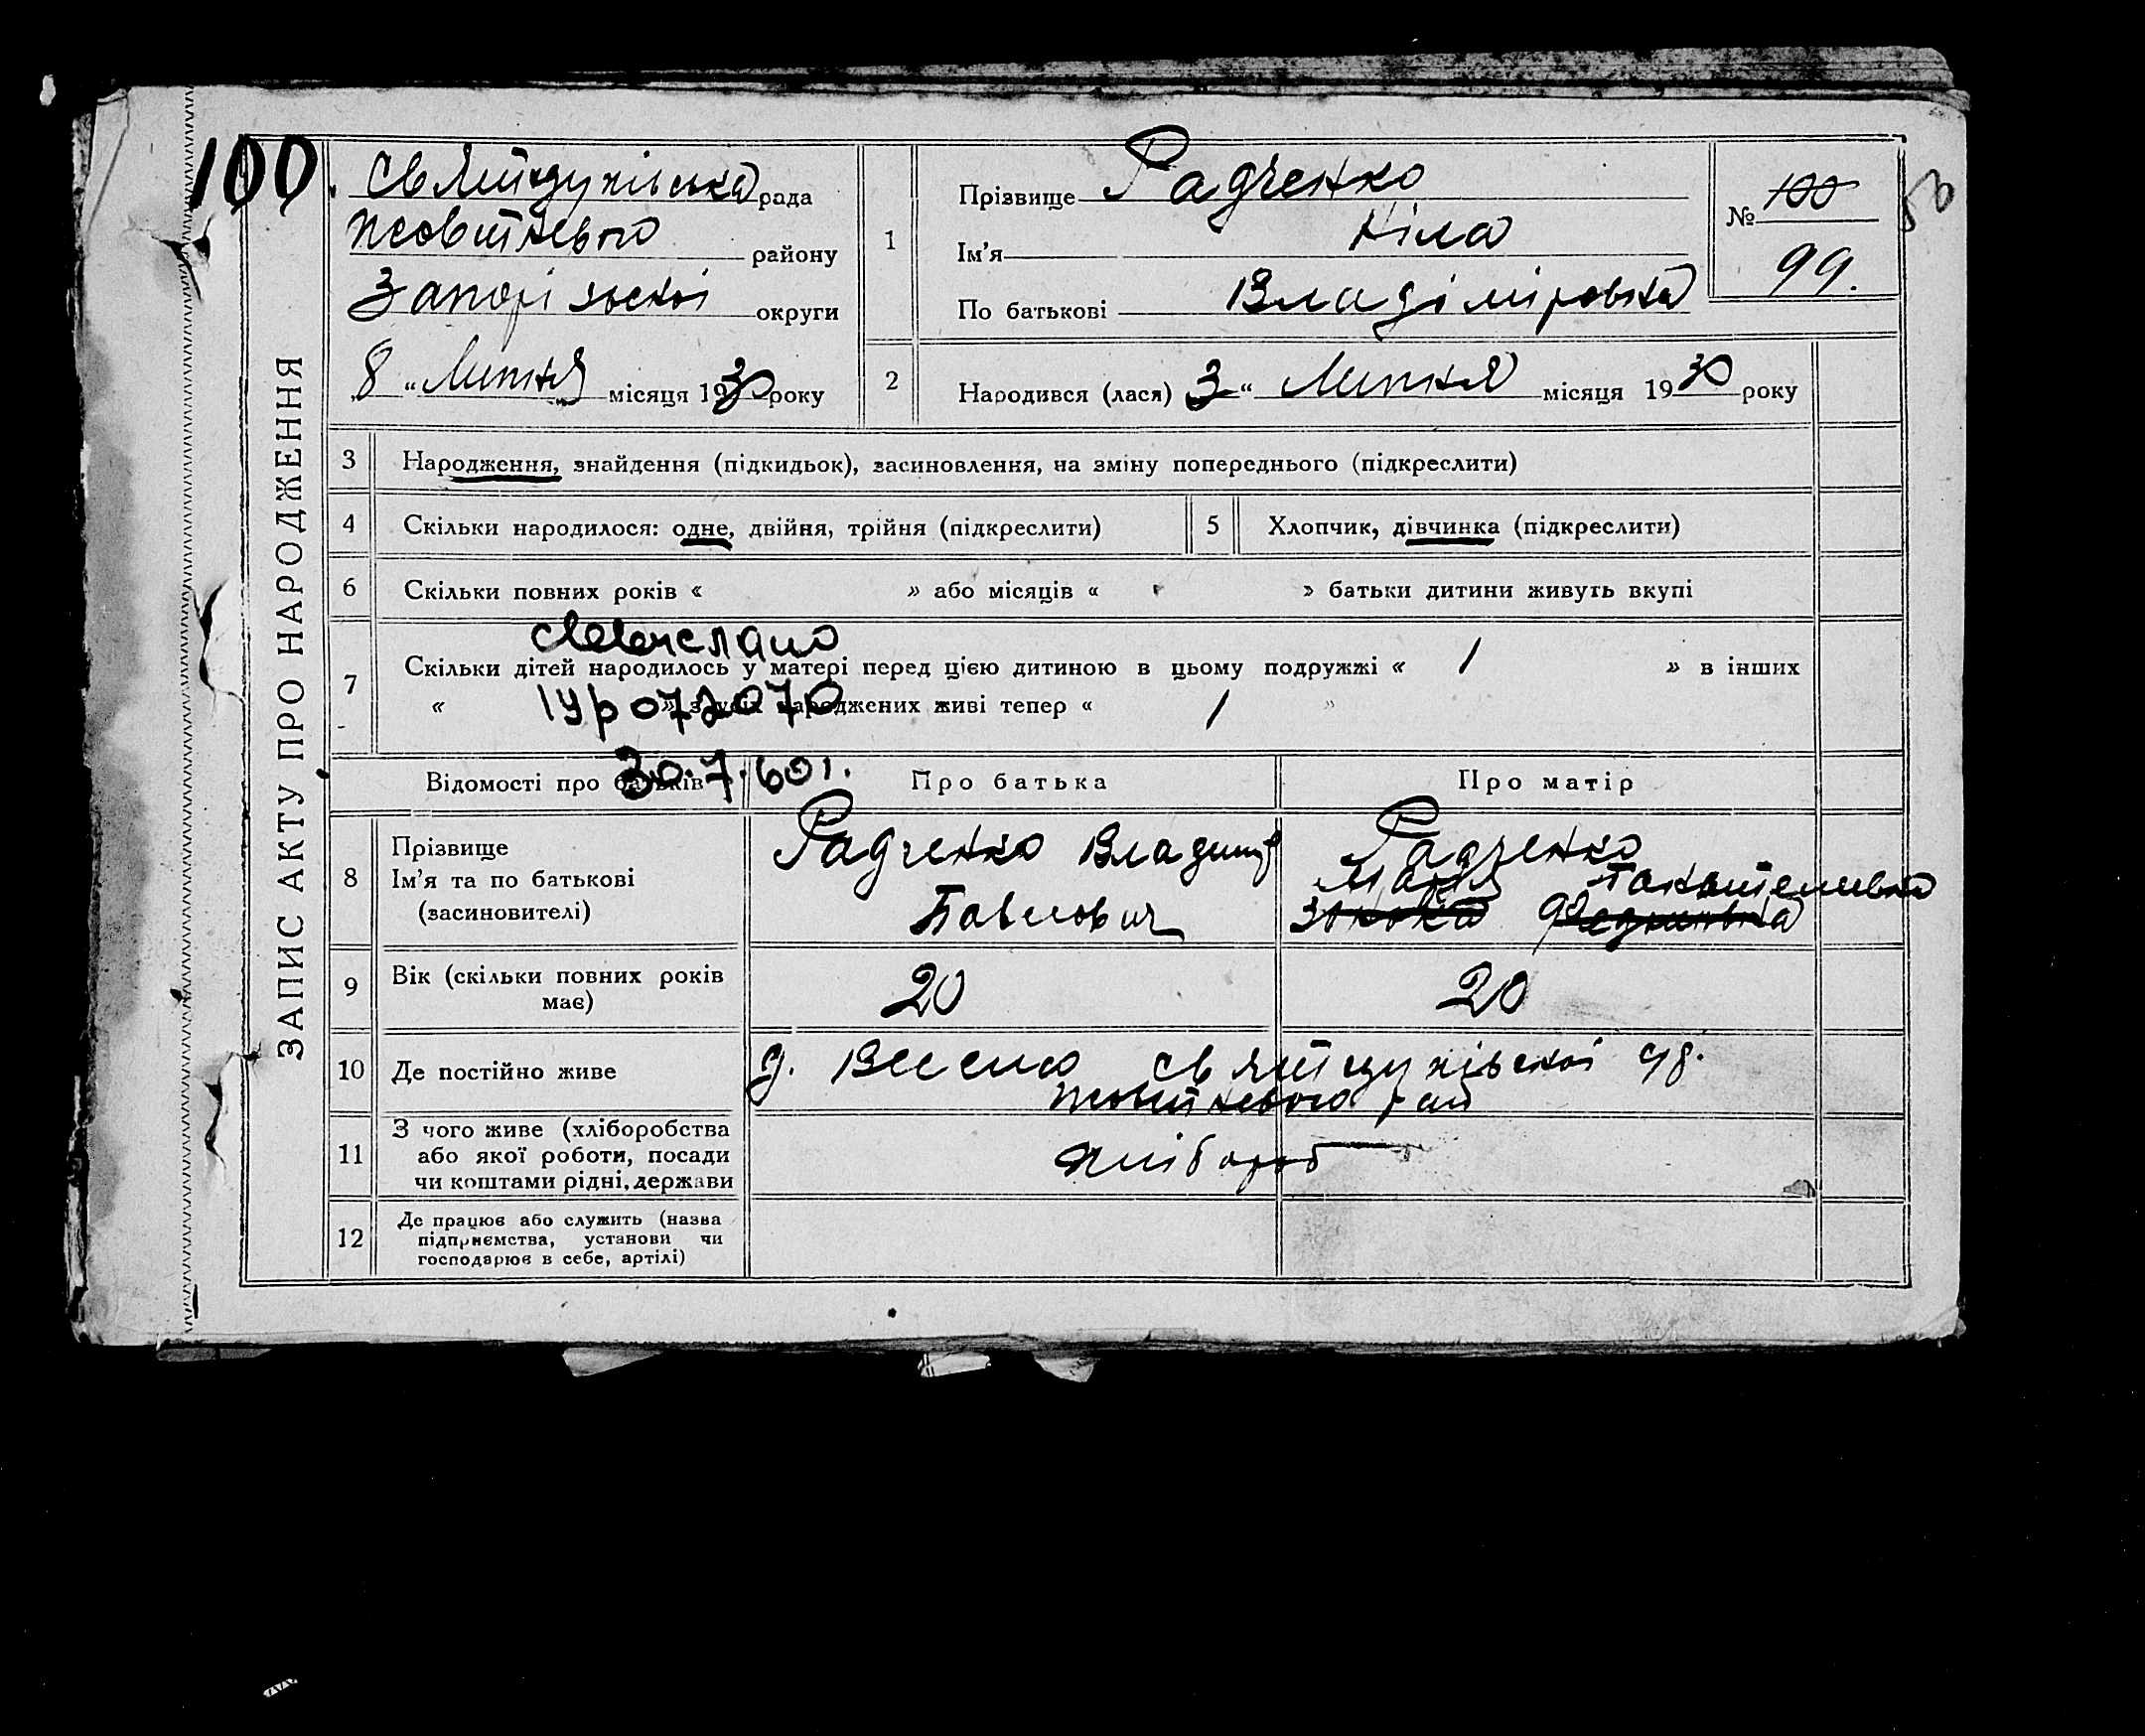 100.
Святодухівська рада
Жовтневого району
Запорізької округи
„8 “ Липня місяця 1930 року
1
Прізвище Радченко
Ім'я Ніла
По батькові Владіміровна
№ 100
99.
50
2
Народився (лася) 3 “ Липня місяця 1930 року
ЗАПИС АКТУ ПРО НАРОДЖЕННЯ
3 Народження, знайдення (підкидьок), засиновлення, на зміну попереднього (підкреслити)
4 Скільки народилося: одне, двійня, трійня (підкреслити) 5 Хлопчик, дівчинка (підкреслити)
6 Скільки повних років « » або місяців « » батьки дитини живуть вкупі
7 Скільки дітей народилось у матері перед цією дитиною в цьому подружжі « 1 » в інших
« » з усіх народжених живі тепер « 1 »
072070
30.7.60г.
Відомості про батьків Про батька Про матір
8 Прізвище
Ім'я та по батькові
(засиновителі)
Радченко Владимір
Павлович
Радченко
Марія
9 Вік (скільки повних років
має)
20 20
10 Де постійно живе
д. Весело Святодухівскої
Жовтневого рай
11 З чого живе (хліборобства
або якої роботи, посади
чи коштами рідні, держави
хлібороб
12 Де працює або служить (назва
підприємства, установи чи
господарює в себе, артілі)